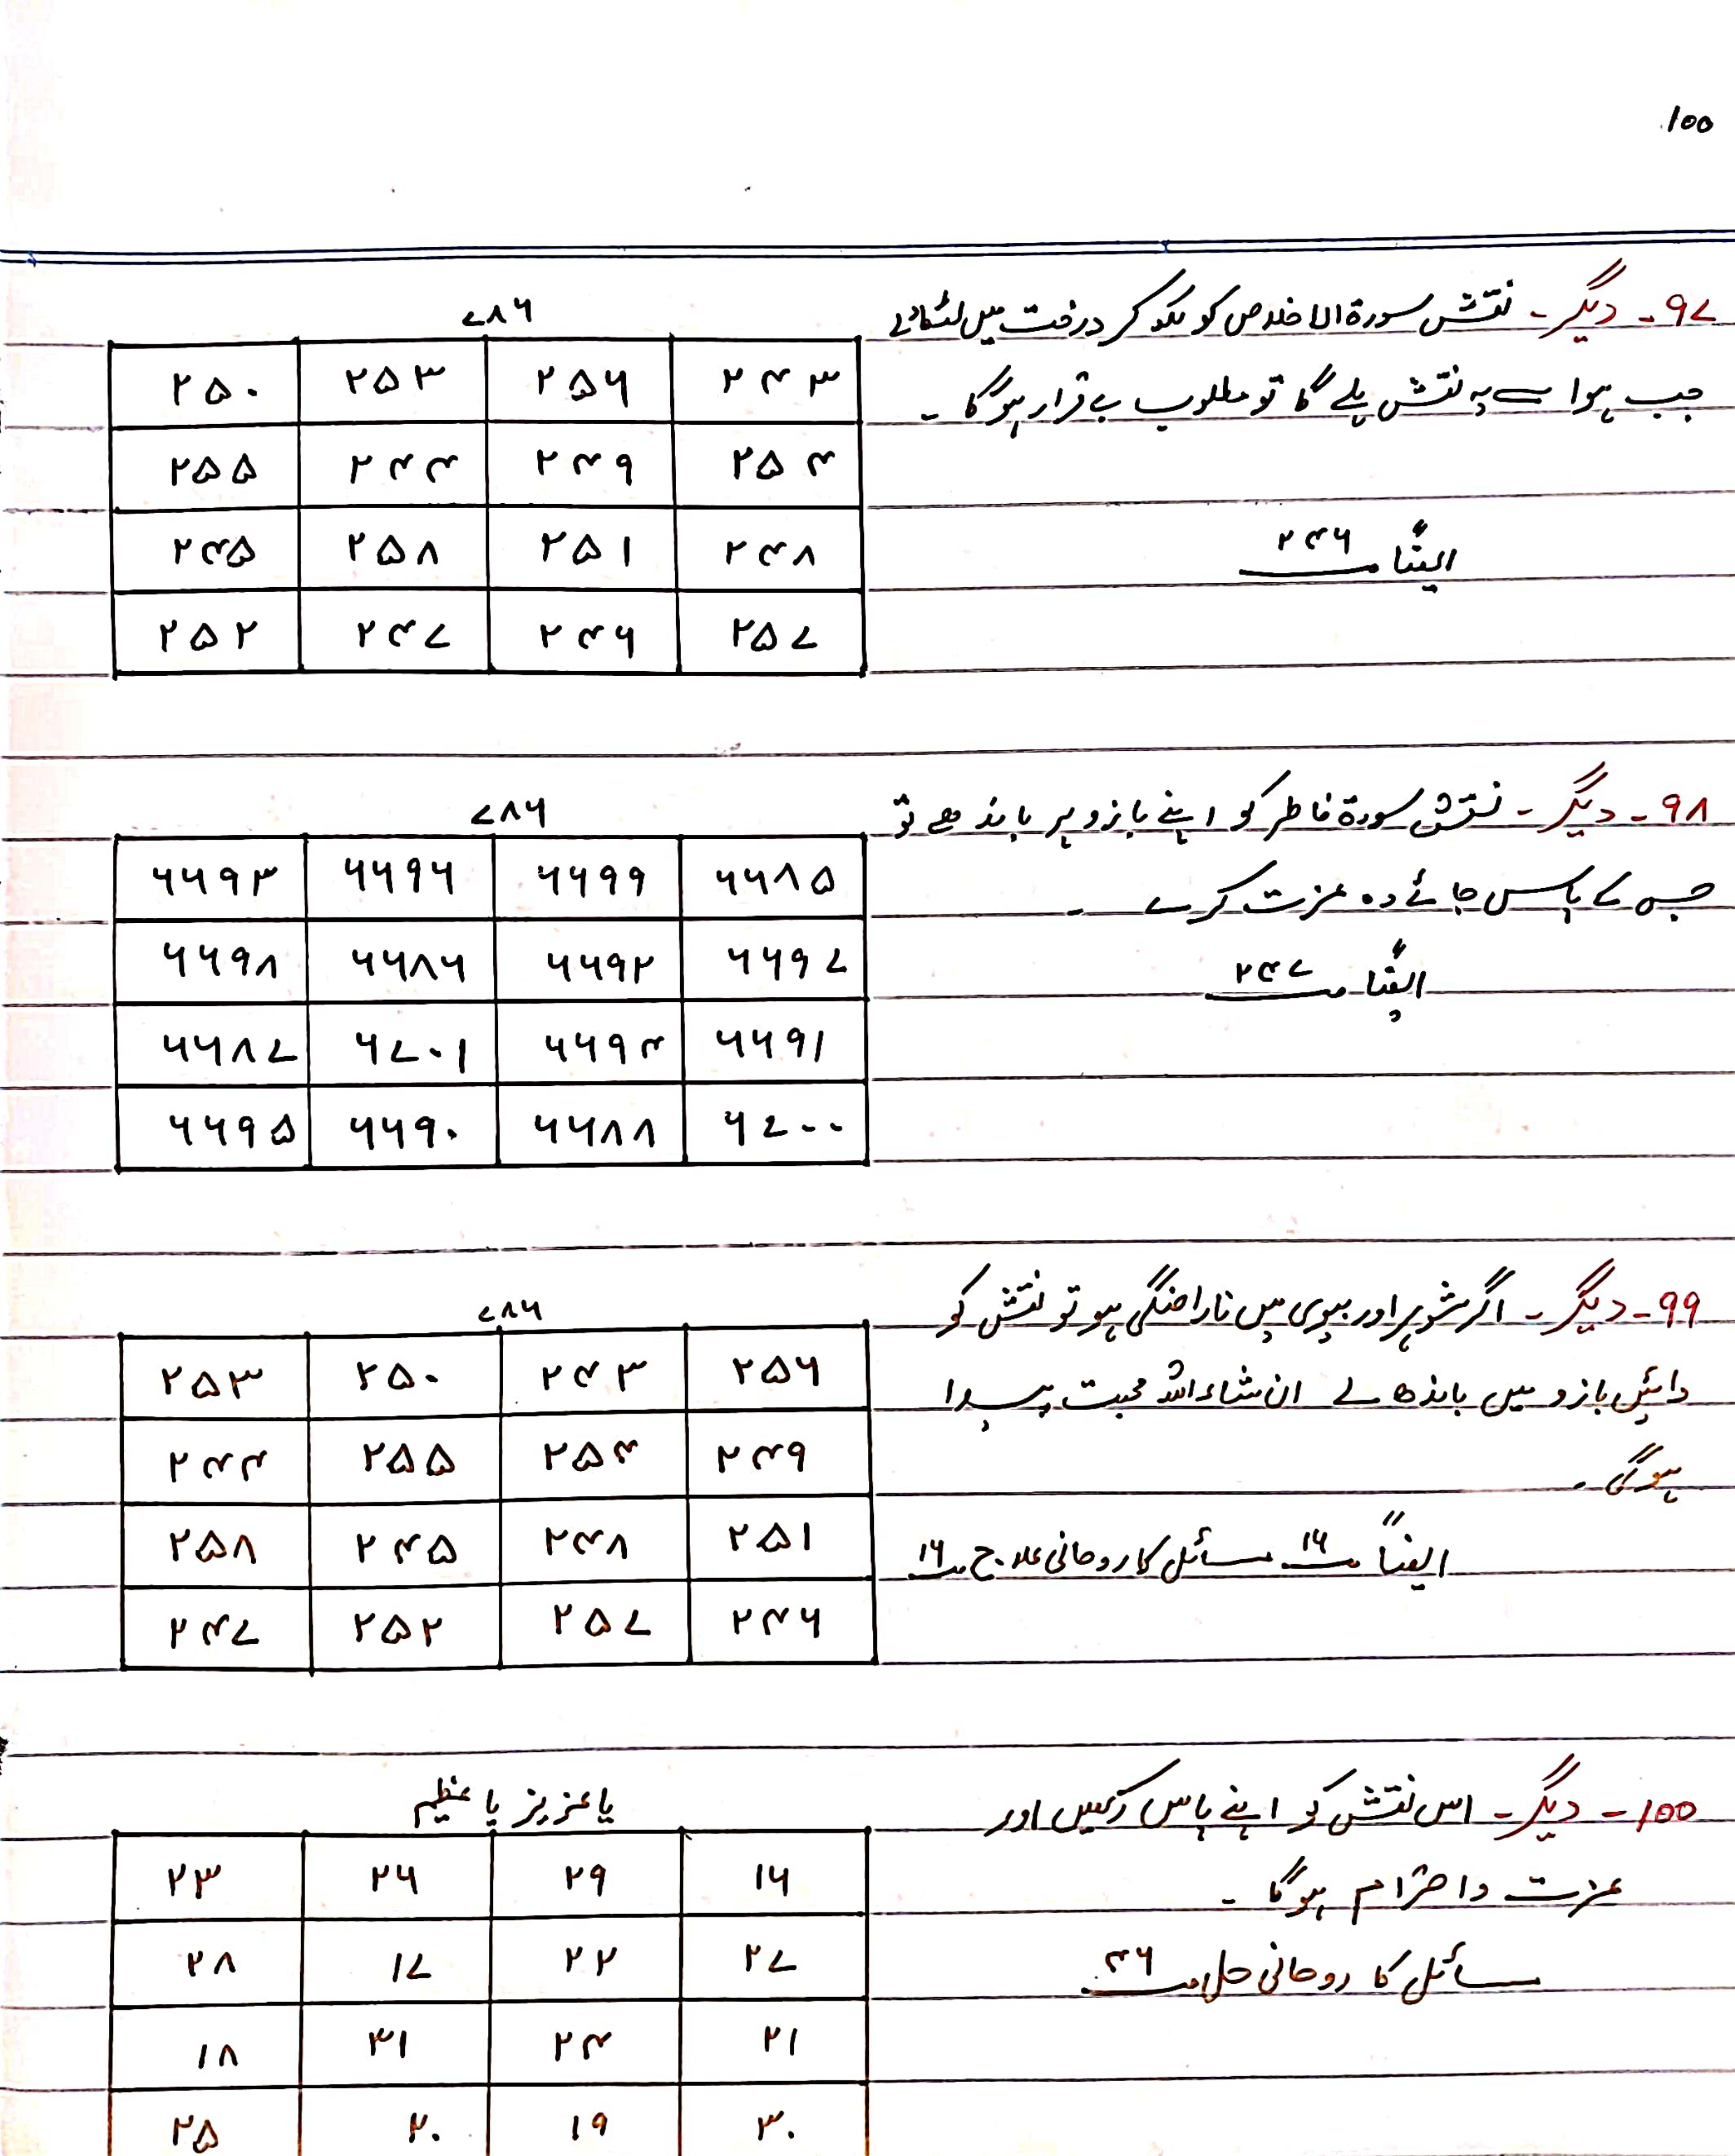 100
۹۷- دیگر- نقش سورۃ الاخلاص کو لکھ کر درخت میں لٹکا دے
جب ہوا سے یہ نقش ہلے گا تو مطلوب بے قرار ہوگا -
ایضًا صـ ۲۴۶
۷۸۶
۲۵۰ ۲۵۳ ۲۵۶ ۲۴۳
۲۵۵ ۲۴۴ ۲۴۹ ۲۵۴
۲۴۵ ۲۵۸ ۲۵۱ ۲۴۸
۲۵۲ ۲۴۷ ۲۴۶ ۲۵۷
۹۸- دیگر- نقش سورۃ فاطر کو اپنے بازو پر باندھے تو
جس کے پاس جائے وہ عزت کرے -
ایضًا صـ ۲۴۷
۷۸۶
۶۶۹۳ ۶۶۹۶ ۶۶۹۹ ۶۶۸۵
۶۶۹۸ ۶۶۸۶ ۶۶۹۲ ۶۶۹۷
۶۶۸۷ ۶۷۰۱ ۶۶۹۴ ۶۶۹۱
۶۶۹۵ ۶۶۹۰ ۶۶۸۸ ۶۷۰۰
۹۹- دیگر- اگر شوہر اور بیوی میں ناراضگی ہو تو نقش کو
دائیں بازو میں باندھ لے ان شاء اللہ محبت پیدا
ہوگی -
ایضاً صـ ۱۶ مسائل کا روحانی علاج صـ ۱۶
۷۸۶
۲۵۳ ۲۵۰ ۲۴۳ ۲۵۶
۲۴۴ ۲۵۵ ۲۵۴ ۲۴۹
۲۵۸ ۲۴۵ ۲۴۸ ۲۵۱
۲۴۷ ۲۵۲ ۲۵۷ ۲۴۶
۱۰۰- دیگر- اس نقش کو اپنے پاس رکھیں اور
عزت و احترام ہوگا -
مسائل کا روحانی حل صـ ۴۶
یا عزیز یا عظیم
۲۳ ۲۶ ۲۹ ۱۶
۲۸ ۱۷ ۲۲ ۲۷
۱۸ ۳۱ ۲۴ ۲۱
۲۵ ۲۰ ۱۹ ۳۰